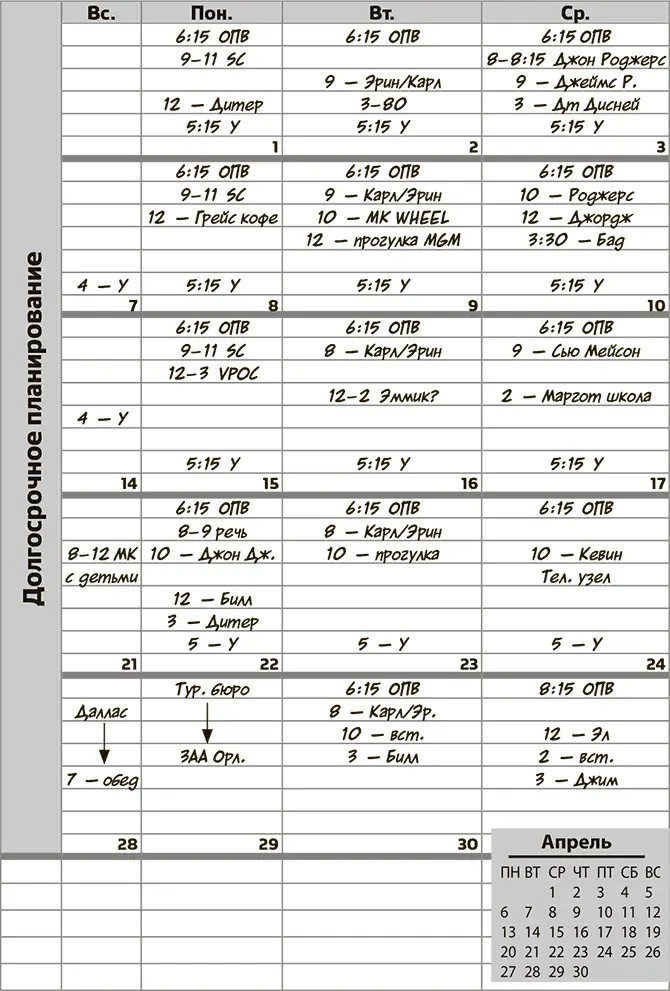 Долгосрочное планирование
Вс. Пон. Вт. Ср.
6:15 ОПВ 6:15 ОПВ 6:15 ОПВ
9–11 SC 8–8:15 Джон Роджерс
9 – Эрин/Карл 9 – Джеймс Р.
12 – Дитер 3–80 3 – Дт Дисней
5:15 У 5:15 У 5:15 У
1 2 3
6:15 ОПВ 6:15 ОПВ 6:15 ОПВ
9–11 SC 9 – Карл/Эрин 10 – Роджерс
12 – Грейс кофе 10 – МК WHEEL 12 – Джордж
12 – прогулка MGM 3:30 – Бад
4 – У 5:15 У 5:15 У 5:15 У
7 8 9 10
6:15 ОПВ 6:15 ОПВ 6:15 ОПВ
9–11 SC 8 – Карл/Эрин 9 – Сью Мейсон
12–3 VPOC
12–2 Эммик? 2 – Маргот школа
4 – У
5:15 У 5:15 У 5:15 У
14 15 16 17
6:15 ОПВ 6:15 ОПВ 6:15 ОПВ
8–9 речь 8 – Карл/Эрин
8–12 МК 10 – Джон Дж. 10 – прогулка 10 – Кевин
с детьми Тел. узел
12 – Билл
3 – Дитер
5 – У 5 – У 5 – У
21 22 23 24
Тур. бюро 6:15 ОПВ 8:15 ОПВ
Даллас 8 – Карл/Эр.
10 – вст. 12 – Эл
ЗАА Орл. 3 – Билл 2 – вст.
7 – обед 3 – Джим
28 29 30
Апрель
ПН ВТ СР ЧТ ПТ СБ ВС
1 2 3 4 5
6 7 8 9 10 11 12
13 14 15 16 17 18 19
20 21 22 23 24 25 26
27 28 29 30